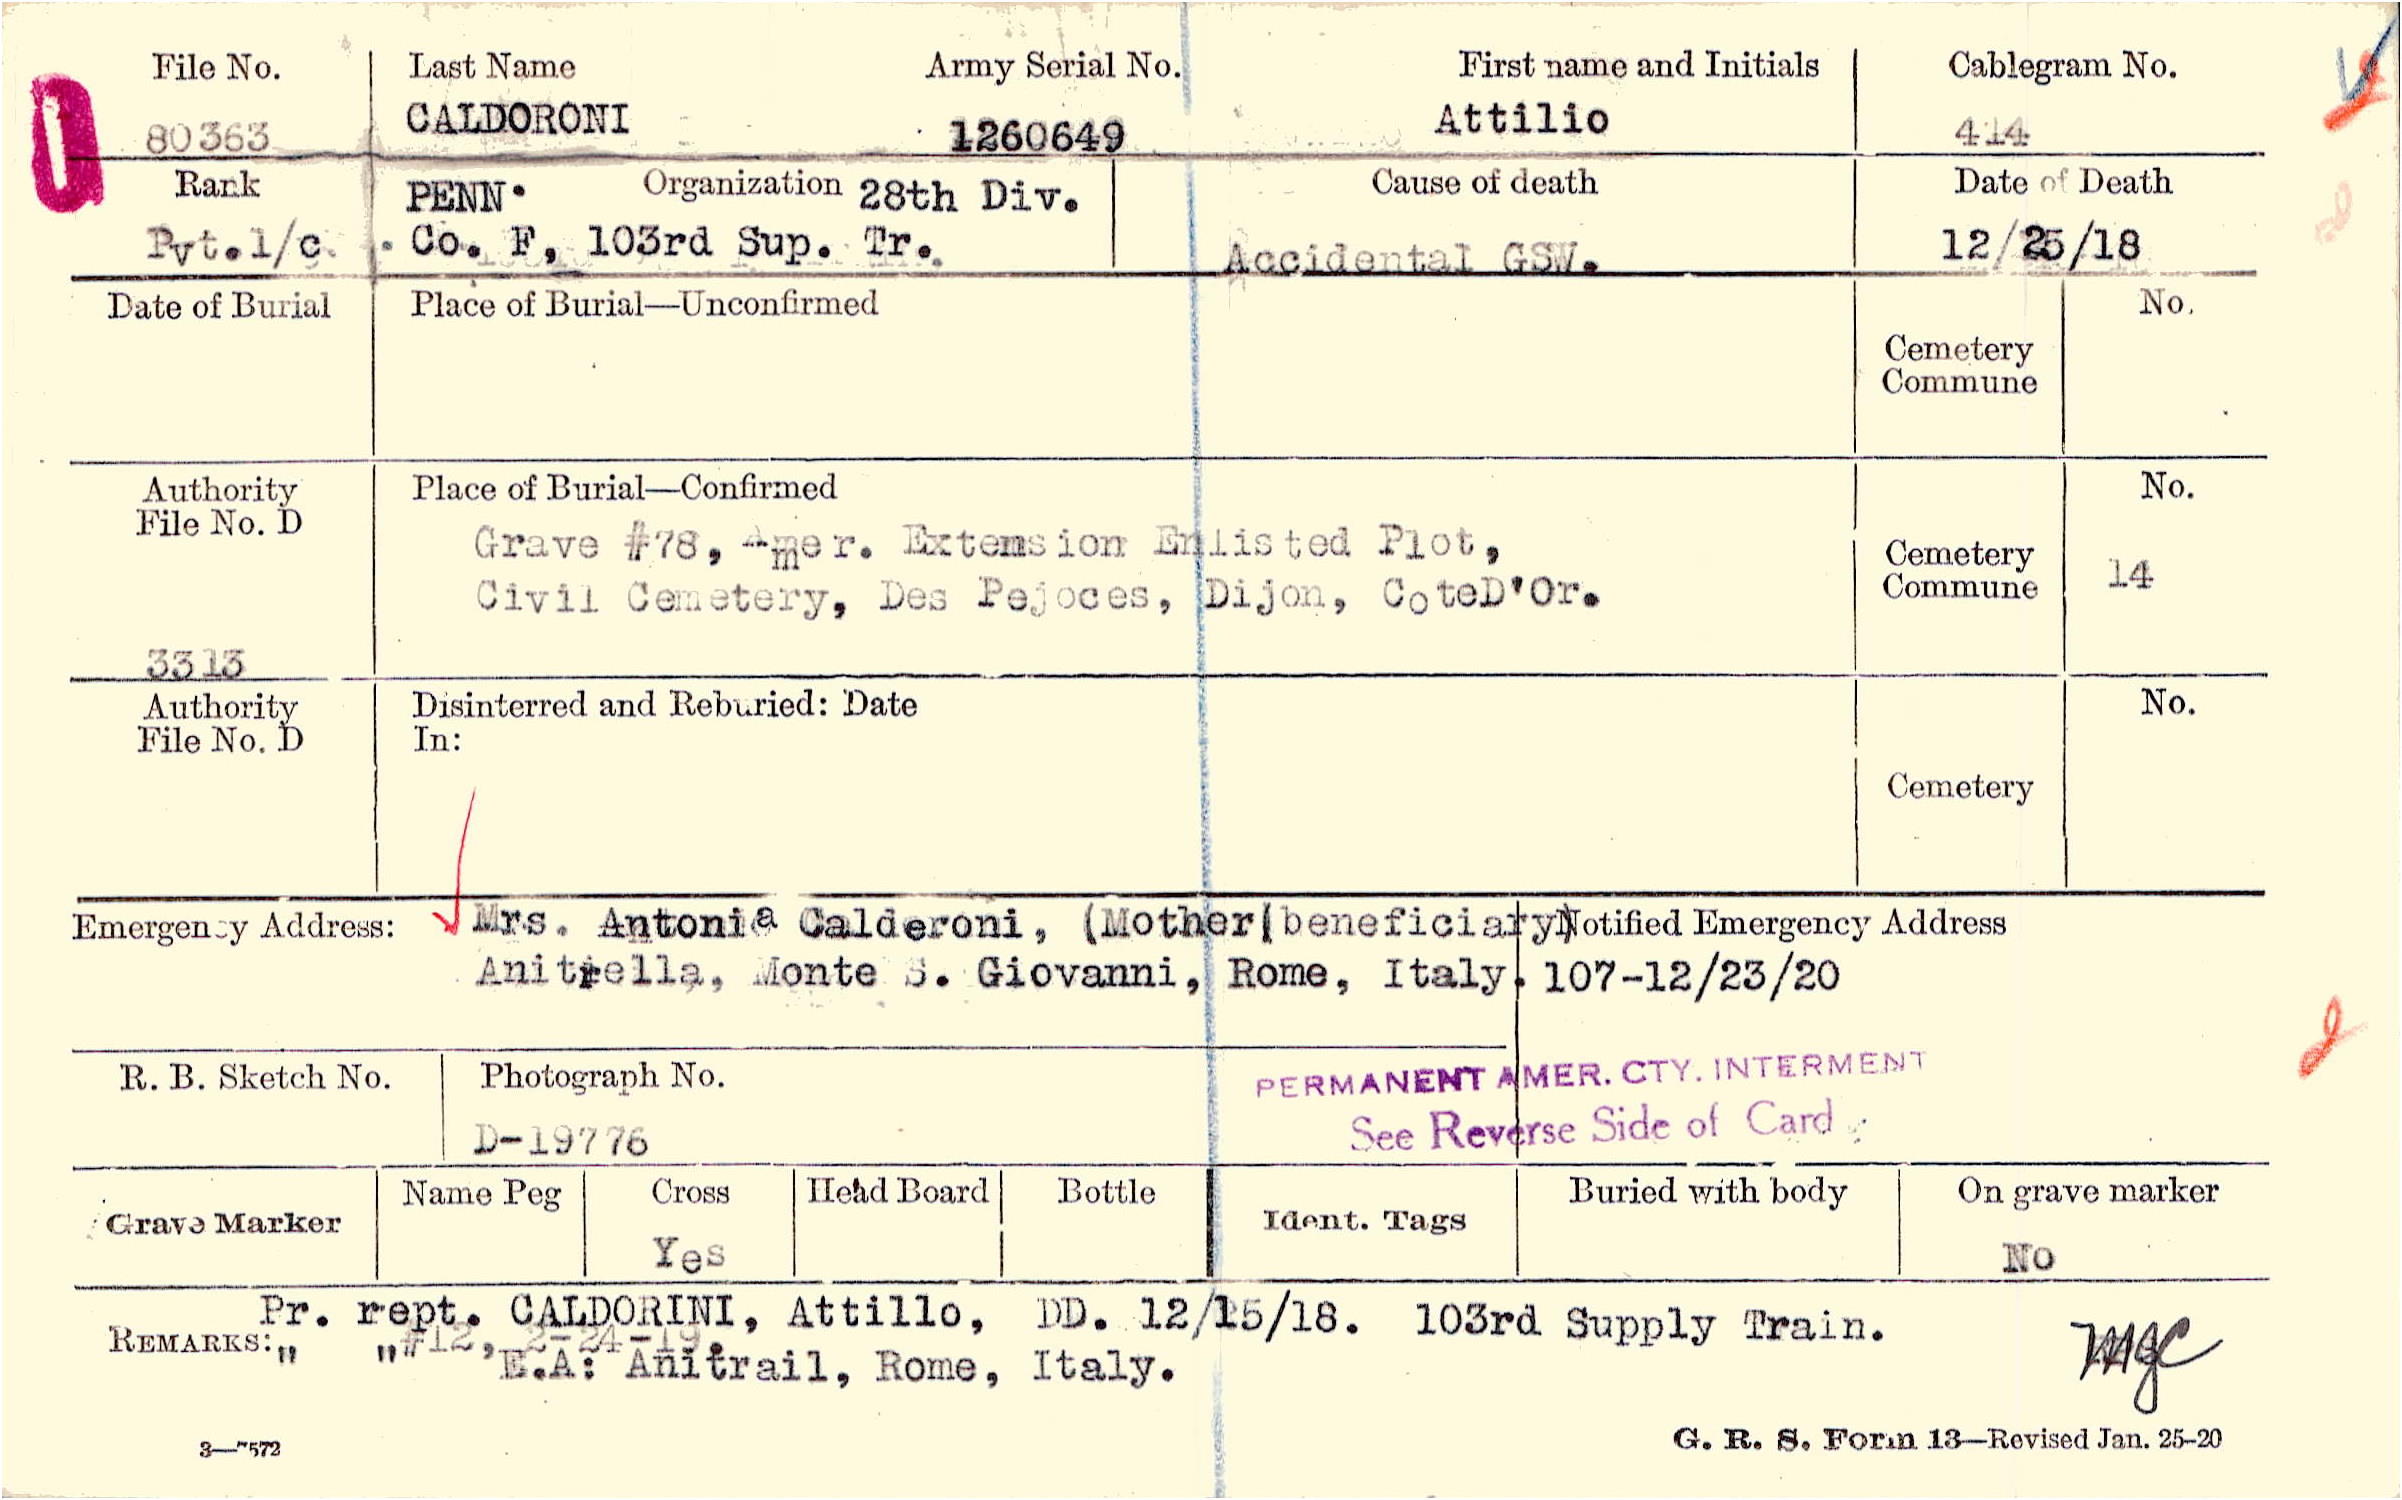 File No. Last Name Army Serial No. First name and Initials Cablegram No.
80363 CALDORONI 1260649 Attilio 414
Rank PENN. Organization 28th Div. Cause of death Date of Death
Pvt.1/c. Co. F, 103rd Sup. Tr. Accidental GSW. 12/25/18
Date of Burial Place of Burial—Unconfirmed No.
Cemetery
Commune
Authority Place of Burial—Confirmed No.
File No. D
Grave #78, Amer. Extension Enlisted Plot, Cemetery
Civil Cemetery, Des Pejoces, Dijon, CoteD'Or. Commune 14
3313
Authority Disinterred and Reburied: Date No.
File No. D In:
Cemetery
Emergency Address: Mrs. Antonia Calderoni, (Mother(beneficiary) Notified Emergency Address
Anitrella, Monte S. Giovanni, Rome, Italy. 107-12/23/20
R. B. Sketch No. Photograph No. PERMANENT AMER. CTY. INTERMENT
D-19776 See Reverse Side of Card
Grave Marker Name Peg Cross Head Board Bottle Ident. Tags Buried with body On grave marker
Yes No
Pr. rept. CALDORINI, Attillo, DD. 12/15/18. 103rd Supply Train.
REMARKS: " "#12, 2-24-19.
E.A: Anitrail, Rome, Italy.
mgc
3—7572 G. R. S. Form 13—Revised Jan. 25-20